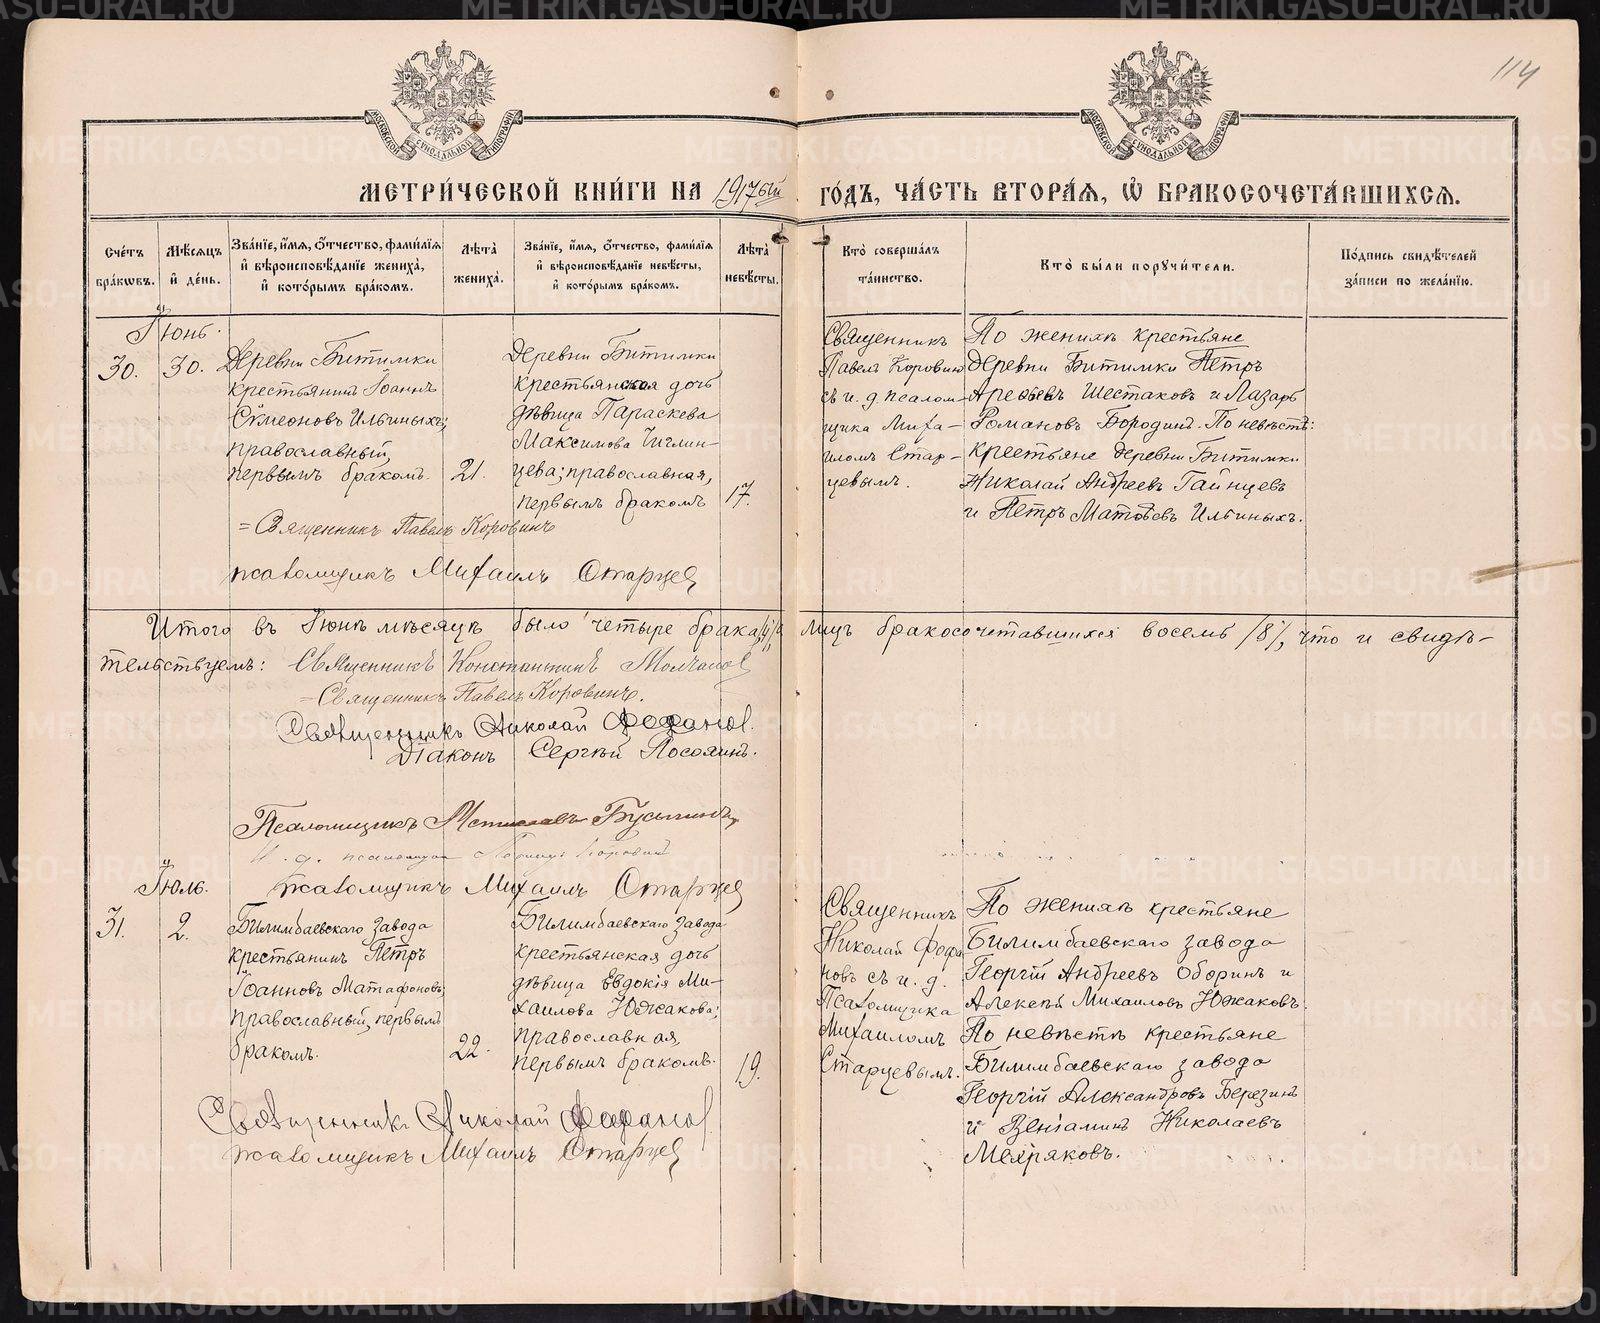 114
МЕТРИ́ЧЕСКОЙ КНИ́ГИ НА 1917ый ГО́ДЪ, ЧА́СТЬ ВТОРА́Я, Ѡ҆ БРАКОСОЧЕТА́ВШИХСЯ.
Сче́тъ бра́кѡвъ.
Мѣ́сяцъ и҆ де́нь.
Зва́нїе, и҆́мя, ѻ҆́тчество, фами́лїя и҆ вѣроисповѣ́данїе жениха̀, и҆ кото́рымъ бра́комъ.
Лѣ́та жениха̀.
Зва́нїе, и҆́мя, ѻ҆́тчество, фами́лїя и҆ вѣроисповѣ́данїе невѣ́сты, и҆ кото́рымъ бра́комъ.
Лѣ́та невѣ́сты.
Кто̀ соверша́лъ та́инство.
Кто̀ бы́ли порꙋчи́тели.
По́дпись свидѣ́телей за́писи по жела́нїю.
Іюнь.
30.
30.
Деревни Битимки
крестьянинъ Іоаннъ
Сѵмеоновъ Ильиныхъ;
православный,
первымъ бракомъ.
21.
Деревни Битимки
крестьянская дочь
дѣвица Параскева
Максимова Чиглин-
цева; православная,
первымъ бракомъ
17.
Священникъ
Павелъ Коровинъ
съ и. д. псалом-
щика Миха-
иломъ Стар-
цевымъ.
По женихѣ крестьяне
деревни Битимки Петръ
Арефьевъ Шестаковъ и Лазарь
Романовъ Бородинъ. По невѣстѣ:
крестьяне деревни Битимки
Николай Андреевъ Гайнцевъ
и Петръ Матвѣевъ Ильиныхъ.
= Священникъ Павелъ Коровинъ
псаломщикъ Михаилъ Старцев
Итого въ Іюнѣ мѣсяцѣ было четыре брака /4/, лицъ бракосочетавшихся восемь /8/, что и свидѣ-
тельствуемъ: Священникъ Константинъ Молчанов
= Священникъ Павелъ Коровинъ.
Священникъ Николай Фофанов.
Діаконъ Сергѣй
Псаломщикъ Мстиславъ
И. д. псаломщика
псаломщикъ Михаилъ Старцев
Іюль.
31.
2.
Билимбаевскаго завода
крестьянинъ Петръ
Іоанновъ Матафоновъ;
православный, первымъ
бракомъ.
22.
Билимбаевскаго завода
крестьянская дочь
дѣвица Евдокія Ми-
хаилова Южакова;
православная,
первымъ бракомъ.
19.
Священникъ
Николай Фофа
новъ съ и. д.
Псаломщика
Михаиломъ
Старцевымъ.
По женихѣ крестьяне
Билимбаевскаго завода
Георгій Андреевъ Оборинъ и
Алексѣй Михаиловъ Южаковъ.
По невѣстѣ крестьяне
Билимбаевскаго завода
Георгій Александровъ Березинъ
и Веніаминъ Николаевъ
Мехряковъ.
Священникъ Николай Фофанов
псаломщикъ Михаилъ Старцев
METRIKI.GASO-URAL.RU